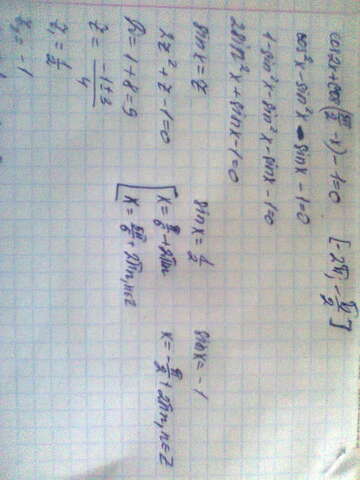 cos2x+cos(π/2 - x) - 1=0 [2π, -π/2]
cos²x - sin²x - sinx - 1=0
1 - sin²x - sin²x - sinx - 1=0
2sin²x + sinx - 1=0
sinx = z
2z² + z - 1=0
D = 1 + 8 = 9
z = -1±3/4
z₁ = 1/2
z₂ = -1
sinx = 1/2
x = π/6 + 2πn
x = 5π/6 + 2πn, n∈Z
sinx = -1
x = -π/2 + 2πn, n∈Z